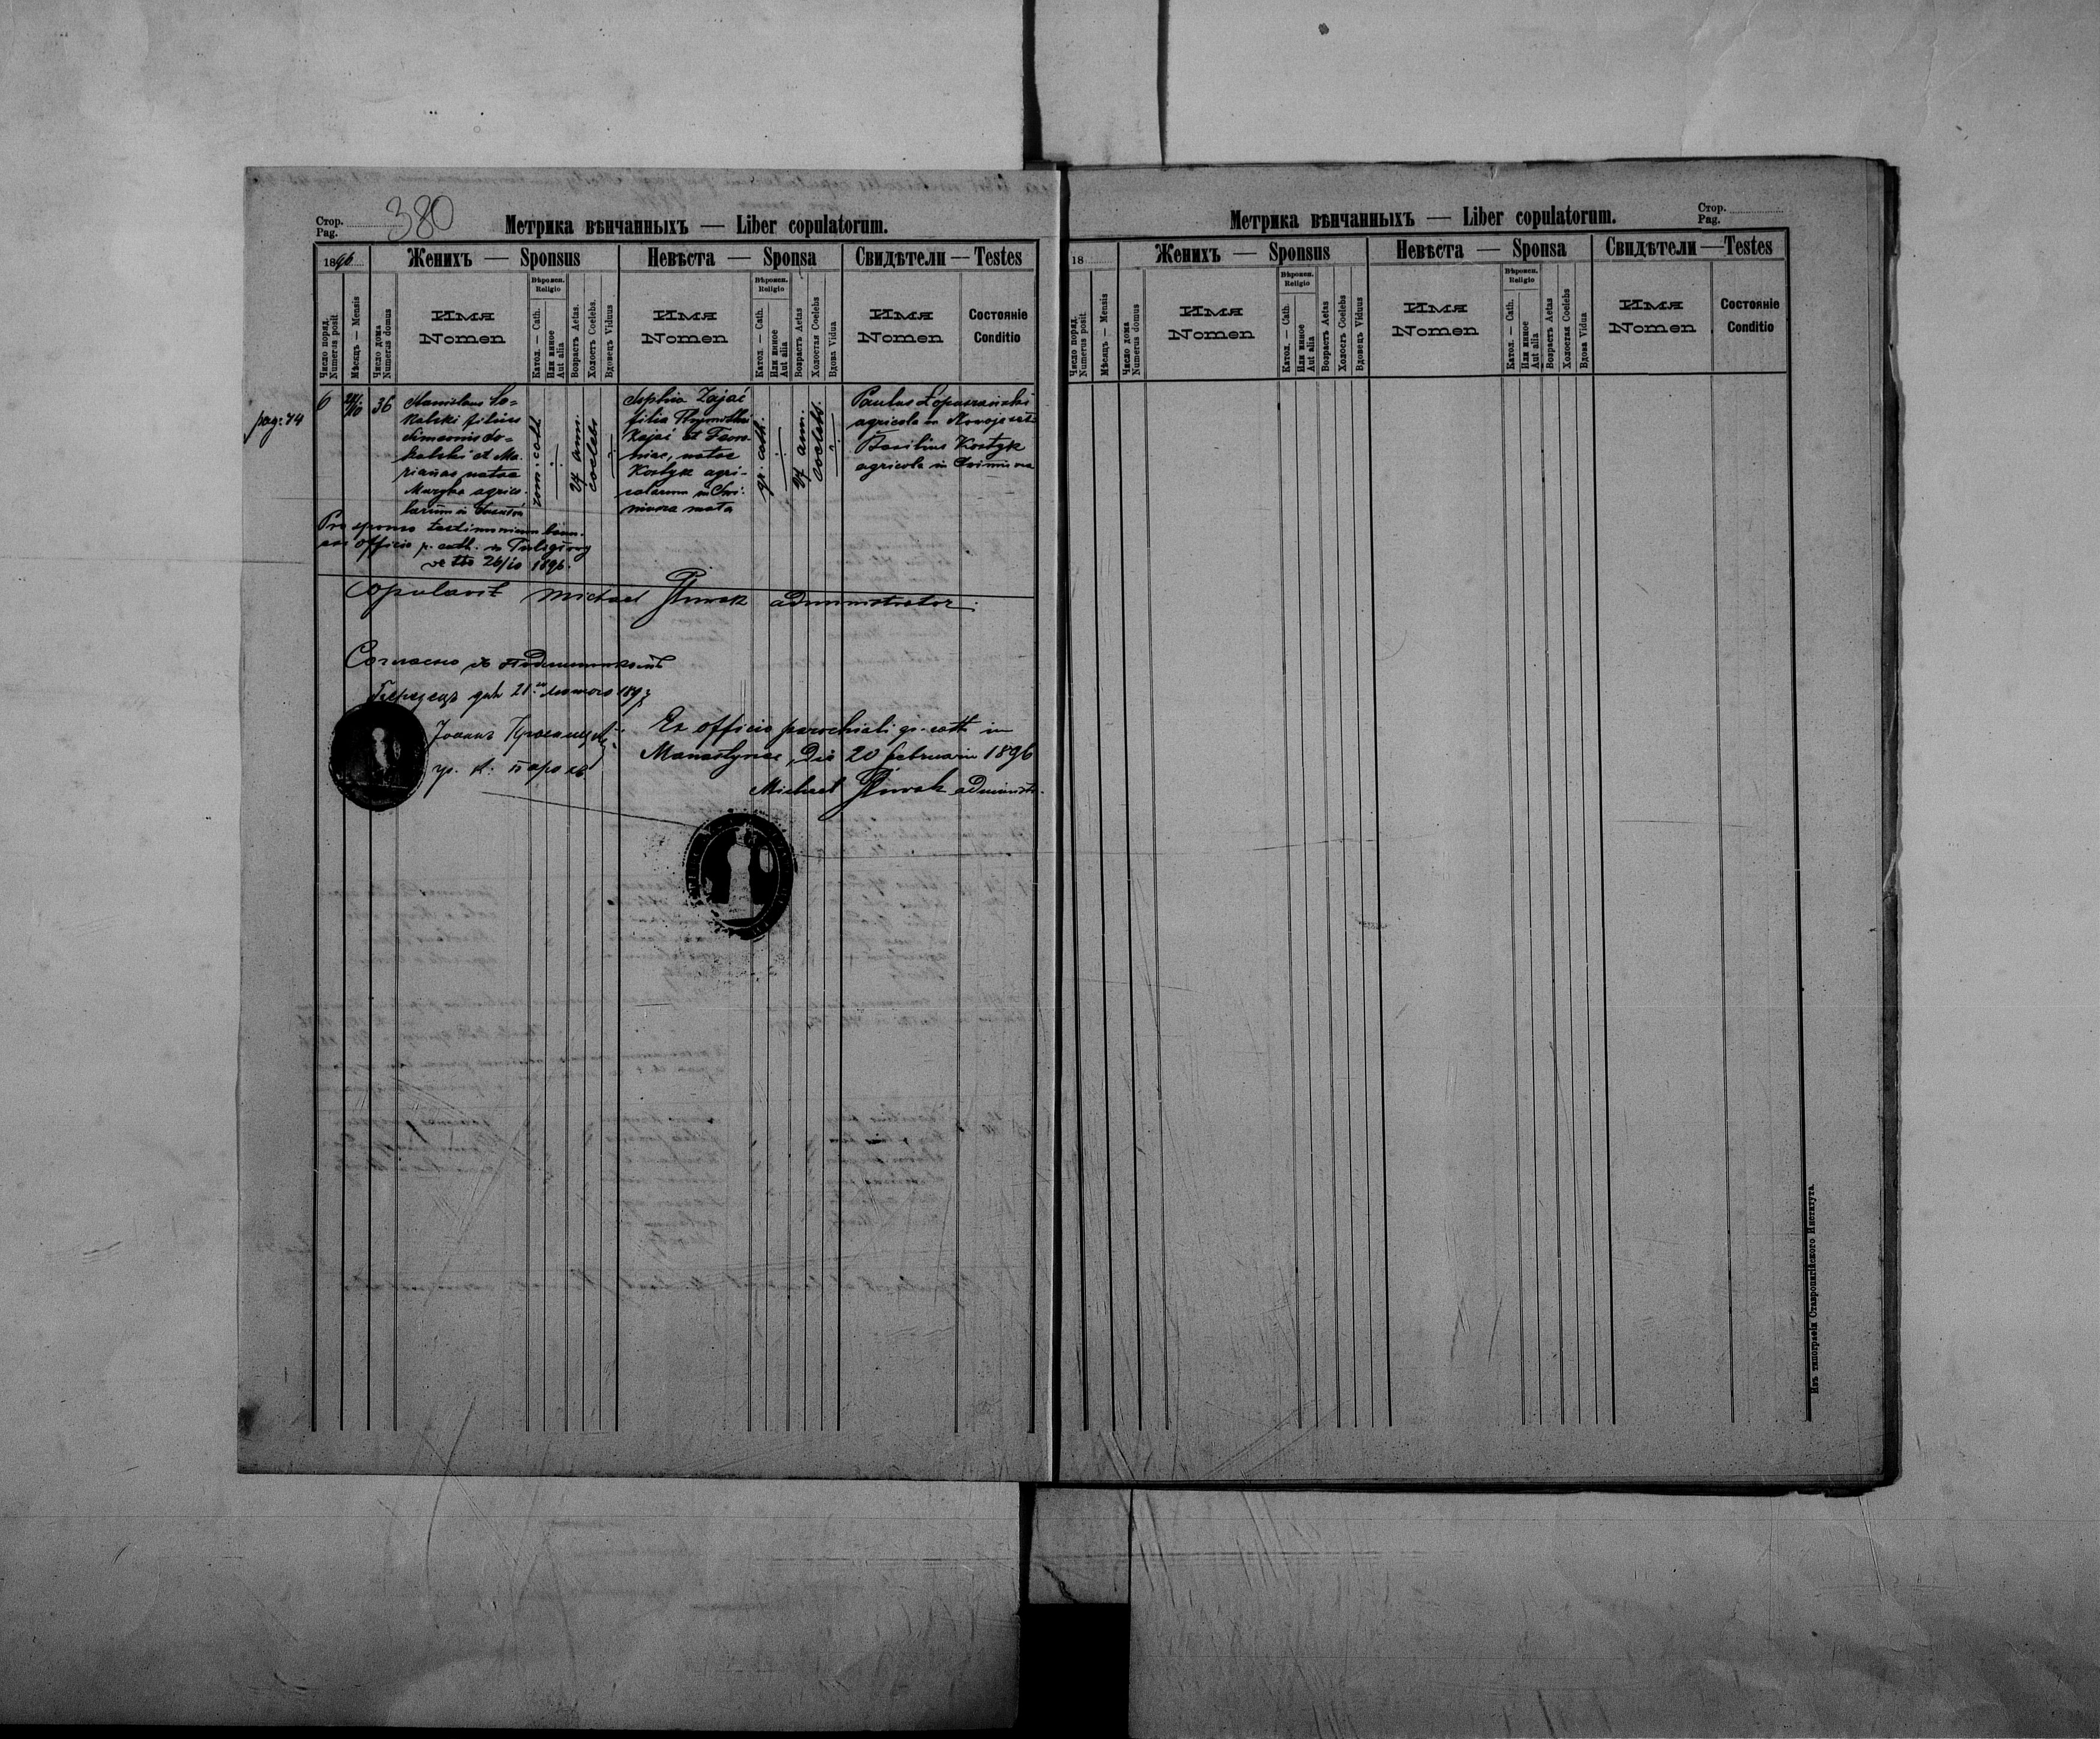 Стор.
Pag.
380
Метрика вѣнчанныхъ — Liber copulatorum.
1896
Женихъ — Sponsus
Невѣста — Sponsa
Свидѣтели — Testes
Число поряд.
Numerus posit
Мѣсяцъ — Mensis
Число дома
Numerus domus
Имя
Nomen
Вѣроисп.
Religio
Катол. — Cath.
Или иное
Aut alia
Возрастъ Aetas.
Холостъ Coelebs.
Вдовецъ Viduus
Имя
Nomen
Вѣроисп.
Religio
Катол. — Cath.
Или иное
Aut alia
Возрастъ Aetas
Холостая Coelebs
Вдова Vidua
Имя
Nomen
Состояніе
Conditio
pag: 74
6
36
Stanislaus So=
kalski filius
Simeonis So=
kalski et Ma-
riannae natae
Muzyka agrico-
larum in
rom: cath
24 ann.
coelebs
Sophia Zajać
filia Thymothei
Zajać et Feron-
niae, natae
Kostyk agri-
colarum in Chi-
nata
gr. cath.
24 ann.
coelebs.
Paulus Łopuszański
agricola in
Basilius Kostyk
agricola in
Pro sponso testimonium bann.
officio r. cath. in
de tto 26/10 1896.
Copulavit Michael administrator:
Согласно съ подлинникомъ
дня 21. 1897
Іоаннъ
гр. к: парохъ
Ex officio parochiali gr. cath in
Manastyrec, Die 20 februarii 1896
Michael administr.
Метрика вѣнчанныхъ — Liber copulatorum.
Стор.
Pag.
18
Женихъ — Sponsus
Невѣста — Sponsa
Свидѣтели — Testes
Число поряд.
Numerus posit.
Мѣсяцъ — Mensis
Число дома
Numerus domus
Имя
Nomen
Вѣроисп.
Religio
Катол. — Cath.
Или иное
Aut alia
Возрастъ Aetas
Холостъ Coelebs
Вдовецъ Viduus
Имя
Nomen
Вѣроисп.
Religio
Катол. — Cath.
Или иное
Aut alia
Возрастъ Aetas
Холостая Coelebs
Вдова Vidua
Имя
Nomen
Состояніе
Conditio
Изъ типографіи Ставропигійского Института.